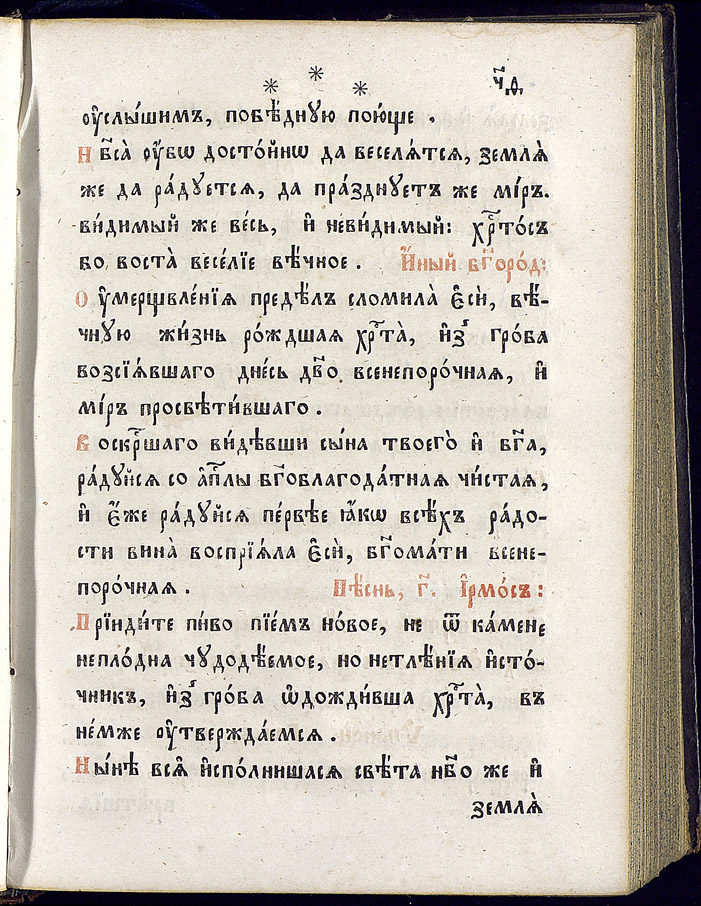 * * * ч҃ѳ.
ᲂу҆слы́шимъ, побѣ́днꙋю пою́ще .
Н б҃са̀ ᲂу҆́бѡ досто́йнѡ да веселѧ́тсѧ, землѧ̀
же да ра́дꙋетсѧ, да пра́зднꙋетъ же мі́ръ.
ви́димый же ве́сь, и҆ неви́димый: хрⷭ҇то́съ
бо воста̀ весе́лїе вѣ́чное . И҆́ный бг҃оро́д:
О у҆мерщвле́нїѧ предѣ́лъ сломила̀ є҆сѝ, вѣ́-
чнꙋю жи́знь ро́ждшаѧ хрⷭ҇та̀, и҆з̾ гро́ба
возсїѧ́вшаго дне́сь дв҃о всенепоро́чнаѧ, и҆
мі́ръ просвѣти́вшаго .
В оскрⷭ҇шаго ви́дѣвши сы́на твоего̀ и҆ бг҃а,
ра́дꙋйсѧ со а҆пⷭ҇лы бг҃облагода́тнаѧ чи́стаѧ,
и҆ є҆́же ра́дꙋйсѧ пе́рвѣе ꙗ҆́кѡ всѣ́хъ ра́до-
сти вина̀ воспрїѧ́ла є҆сѝ, бг҃ома́ти всене-
поро́чнаѧ . Пѣ́снь, г҃. І҆рмо́съ :
П рїиди́те пи́во пїе́мъ но́вое, не ѿ ка́мене
непло́дна чꙋдодѣ́емое, но нетлѣ́нїѧ и҆сто́-
чникъ, и҆з̾ гро́ба ѡ҆дожди́вша хрⷭ҇та̀, въ
не́мже ᲂу҆твержда́емсѧ .
Н ы́нѣ всѧ̑ и҆спо́лнишасѧ свѣ́та нб҃о же и҆
землѧ̀